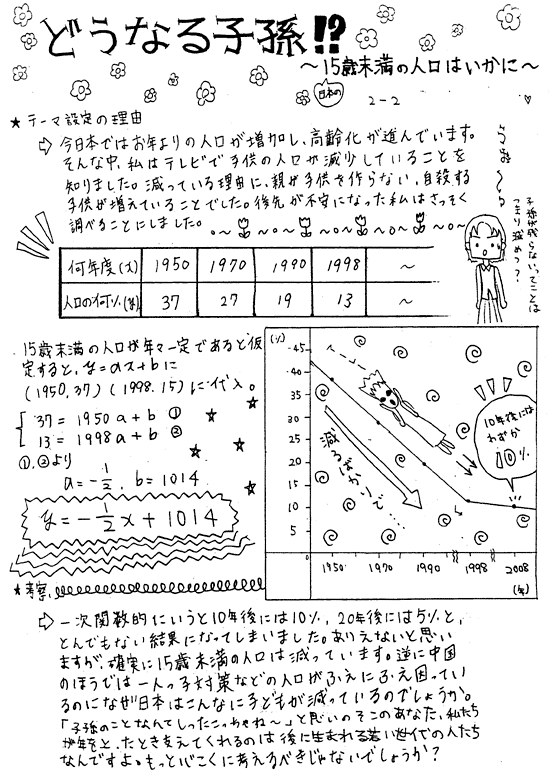 どうなる子孫!?
～15歳未満の人口はいかに～
日本の
2-2
★テーマ設定の理由
⇨ 今日本ではお年よりの人口が増加し、高齢化が進んでいます。
そんな中、私はテレビで子供の人口が減少していることを
知りました。減っている理由に、親が子供を作らない、自殺する
子供が増えていることでした。後先が不安になった私はさっそく
調べることにしました。
うぉ～る
子孫が残らないってことは
つまり滅めつ?
何年度(x) 1950 1970 1990 1998 ～
人口の何%(y) 37 27 19 13 ～
15歳未満の人口が年々一定であると仮
定すると、y=ax+bに
(1950,37) (1998.15)に代入。
37=1950a+b ①
13=1998a+b ②
①,②より
a=-1/2, b=1014
y=-1/2x+1014
(%)
45
40
35
30
25
20
15
10
5
1950 1970 1990 1998 2008
(年)
減るばかりで・・・・
10年後には
わずか
10%
★考察
⇨ 一次関数的にいうと10年後には10%,20年後には5%と、
とんでもない結果になってしまいました。ありえないと思い
ますが、確実に15歳未満の人口は減っています。逆に中国
のほうでは一人っ子対策などの人口がふえにふえ困ってい
るのになぜ日本はこんなに子どもが減っているのでしょうか。
「子孫のことなんてしったこっちゃね～」と思いのそこのあなた、私たち
が年をとったとき支えてくれるのは後に生まれる若い世代の人たち
なんですよ。もっといごこに考えるべきじゃないでしょうか?